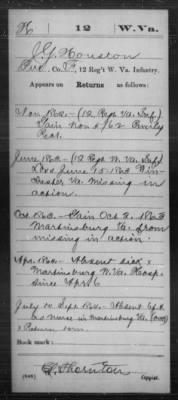 H 12 W.Va.
J. G. Houston
Co. F, 12 Reg't W. Va. Infantry.
Appears on Returns as follows:
Nov. 1862 - (12 Regt W. Va. Inf)
Gain Nov 5/62
Rect.
June, 1863 - (12 Regt W. Va. Inf)
Loss June 15, 1863 Win-
chester Va. Missing in
action.
Oct. 1863 - Gain Oct 2, 1863
Martinsburg Va. from
missing in action.
Apr. 1864 - Absent sick
Martinsburg W. Va. Hosp.
since Apr. 6
July to Sept. 1864 - Absent
as Nurse in Martinsburg Va.
Return
Book mark:
G. Thornton
Copyist.